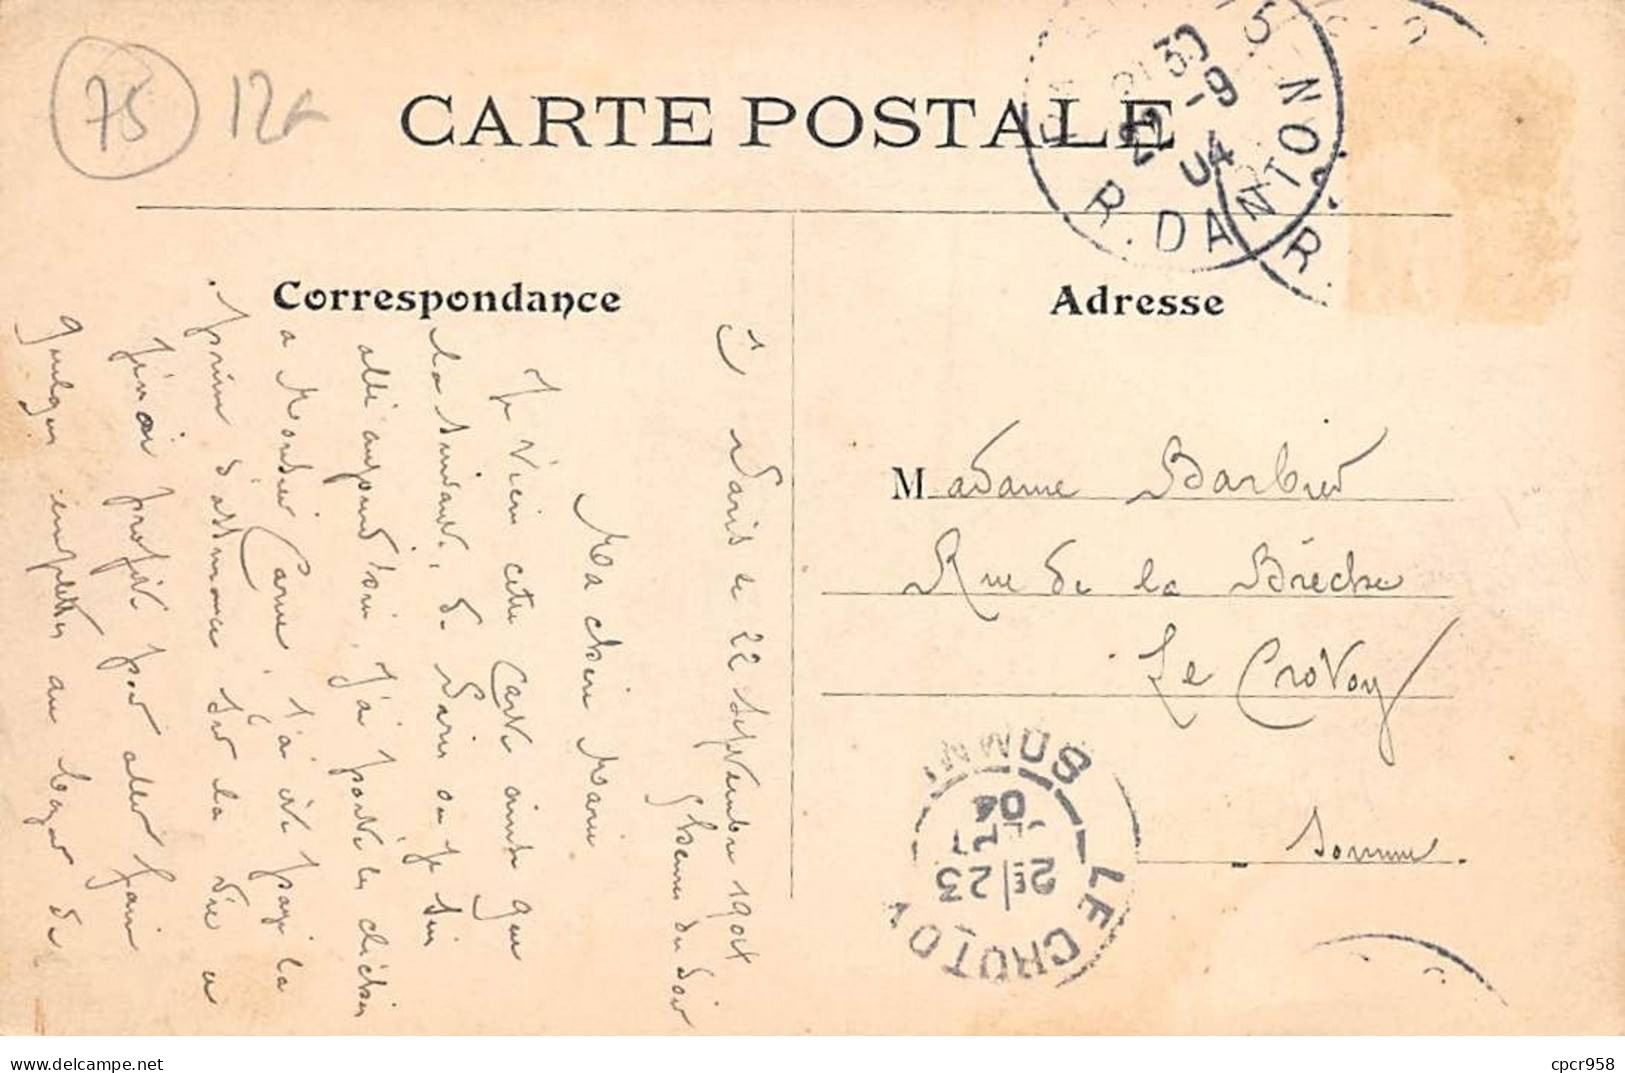 75 12f
CARTE POSTALE
R. DANTON
30 9
22 04
R
Correspondance
Adresse
1)
Paris le 22 Septembre 1904
6 heures du soir
Ma chère Marie
Je vien cette Carte ainsi que
la suivante, de Paris ou je suis
allé aujourd'hui, J'ai porté les clichés
a Monsieur Carou, j'ai été payé la
prime d'assurance sur la vie
J'en ai profité pour aller faire
quelques emplettes au bazar de
Madame Barbier
Rue de la Brèche
Le Crotoy
Somme.
LE CROTOY
SOMME
2E 23
04
cpcr958